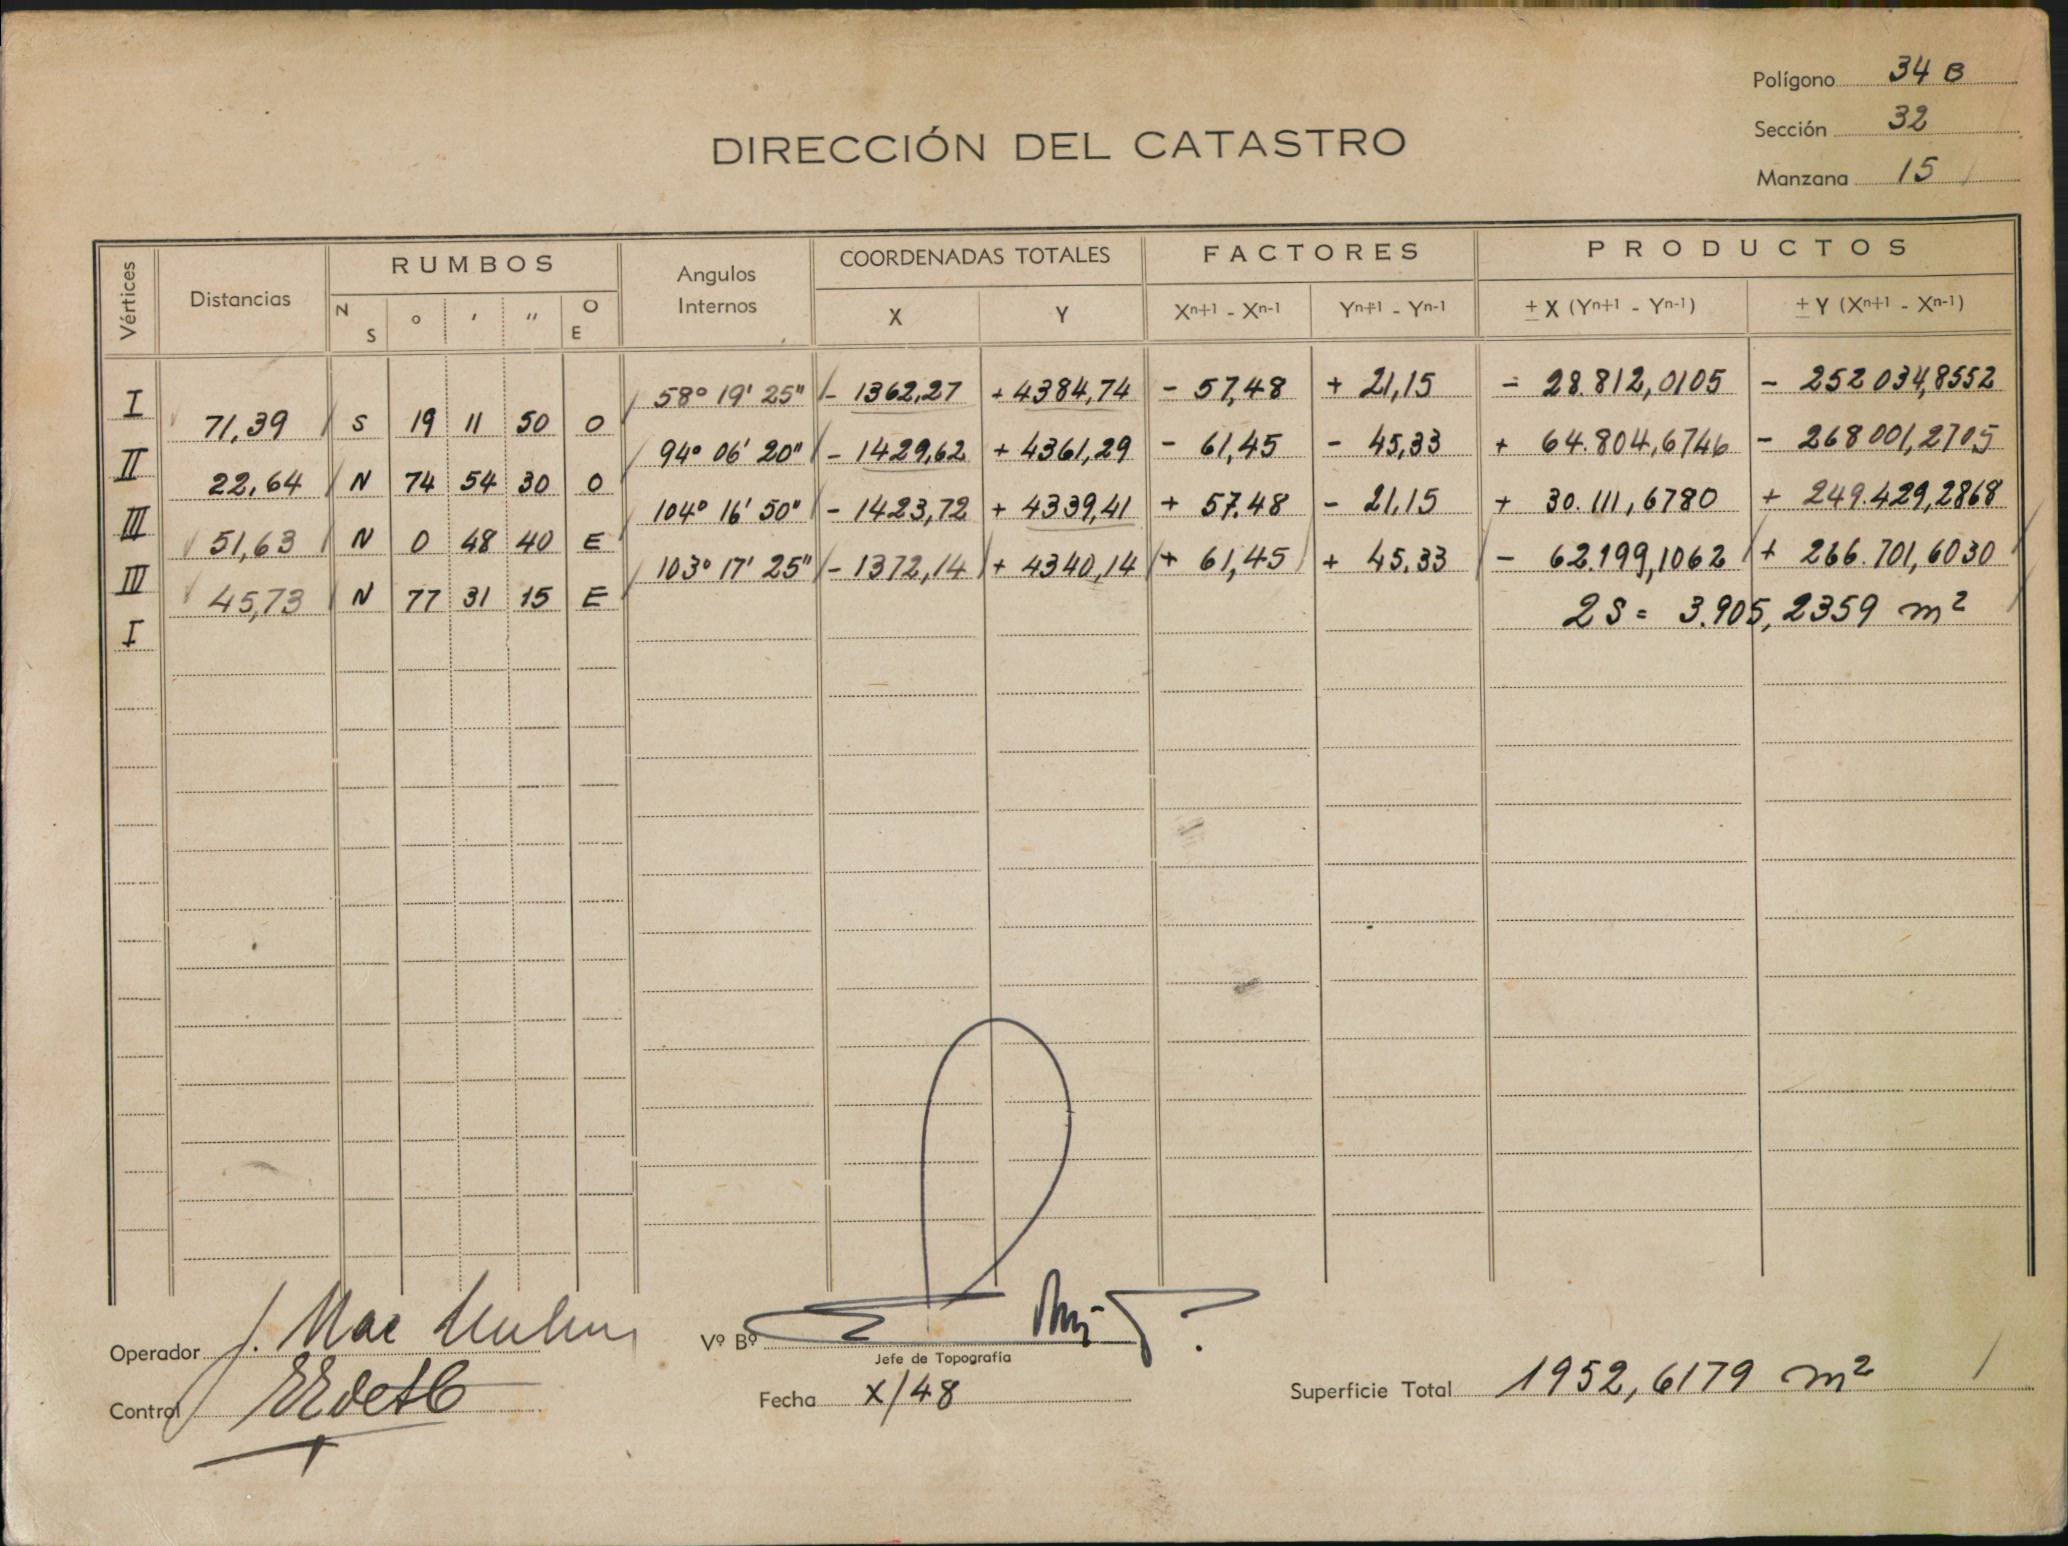 Polígono 34 B
Sección 32
Manzana 15
DIRECCIÓN DEL CATASTRO
Vértices Distancias RUMBOS Angulos Internos COORDENADAS TOTALES FACTORES PRODUCTOS
N S ° ' '' O E X Y Xn+1 - Xn-1 Yn+1 - Yn-1 ± X (Yn+1 - Yn-1) ± Y (Xn+1 - Xn-1)
I 58° 19' 25" - 1362,27 + 4384,74 - 57,48 + 21,15 - 28.812,0105 - 252 034,8552
71,39 S 19 11 50 O
II 94° 06' 20" - 1429,62 + 4361,29 - 61,45 - 45,33 + 64.804,6746 - 268 001,2705
22,64 N 74 54 30 O
III 104° 16' 50" - 1423,72 + 4339,41 + 57.48 - 21,15 + 30.111,6780 + 249.429,2868
51,63 N 0 48 40 E
IIII 103° 17' 25" - 1372,14 + 4340,14 + 61,45 + 45.33 - 62.199,1062 + 266.701,6030
45,73 N 77 31 15 E
I 2S = 3.905,2359 m²
Operador J. Mac
Vº Bº
Jefe de Topografía
Control
Fecha X/48
Superficie Total 1952,6179 m²